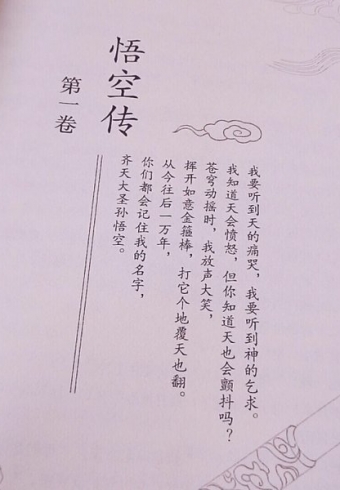 悟空传
第一卷
我要听到天的痛哭，我要听到神的乞求。
我知道天会愤怒，但你知道天也会颤抖吗？
苍穹动摇时，我放声大笑，
挥开如意金箍棒，打它个地覆天也翻。
从今往后一万年，
你们都会记住我的名字，
齐天大圣孙悟空。